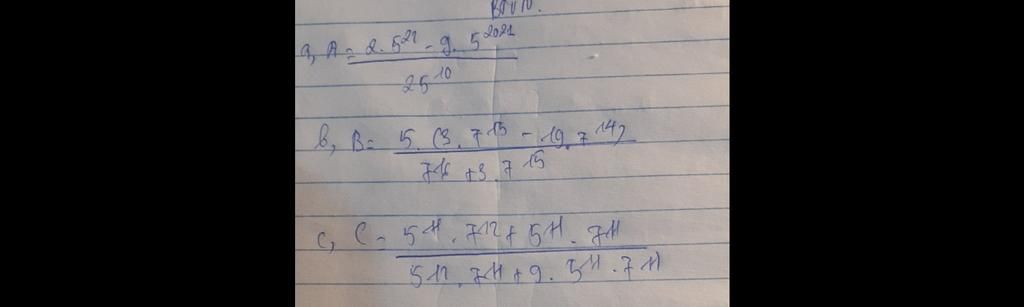 BTVN.
a, A = 2.5²¹ - 9.5²⁰²¹
25¹⁰
b, B = 5.(3.7¹⁵ - 19.7¹⁴)
7¹⁶ + 3.7¹⁵
c, C = 5¹¹.7¹² + 5¹¹.7¹¹
5¹².7¹¹ + 9.5¹¹.7¹¹